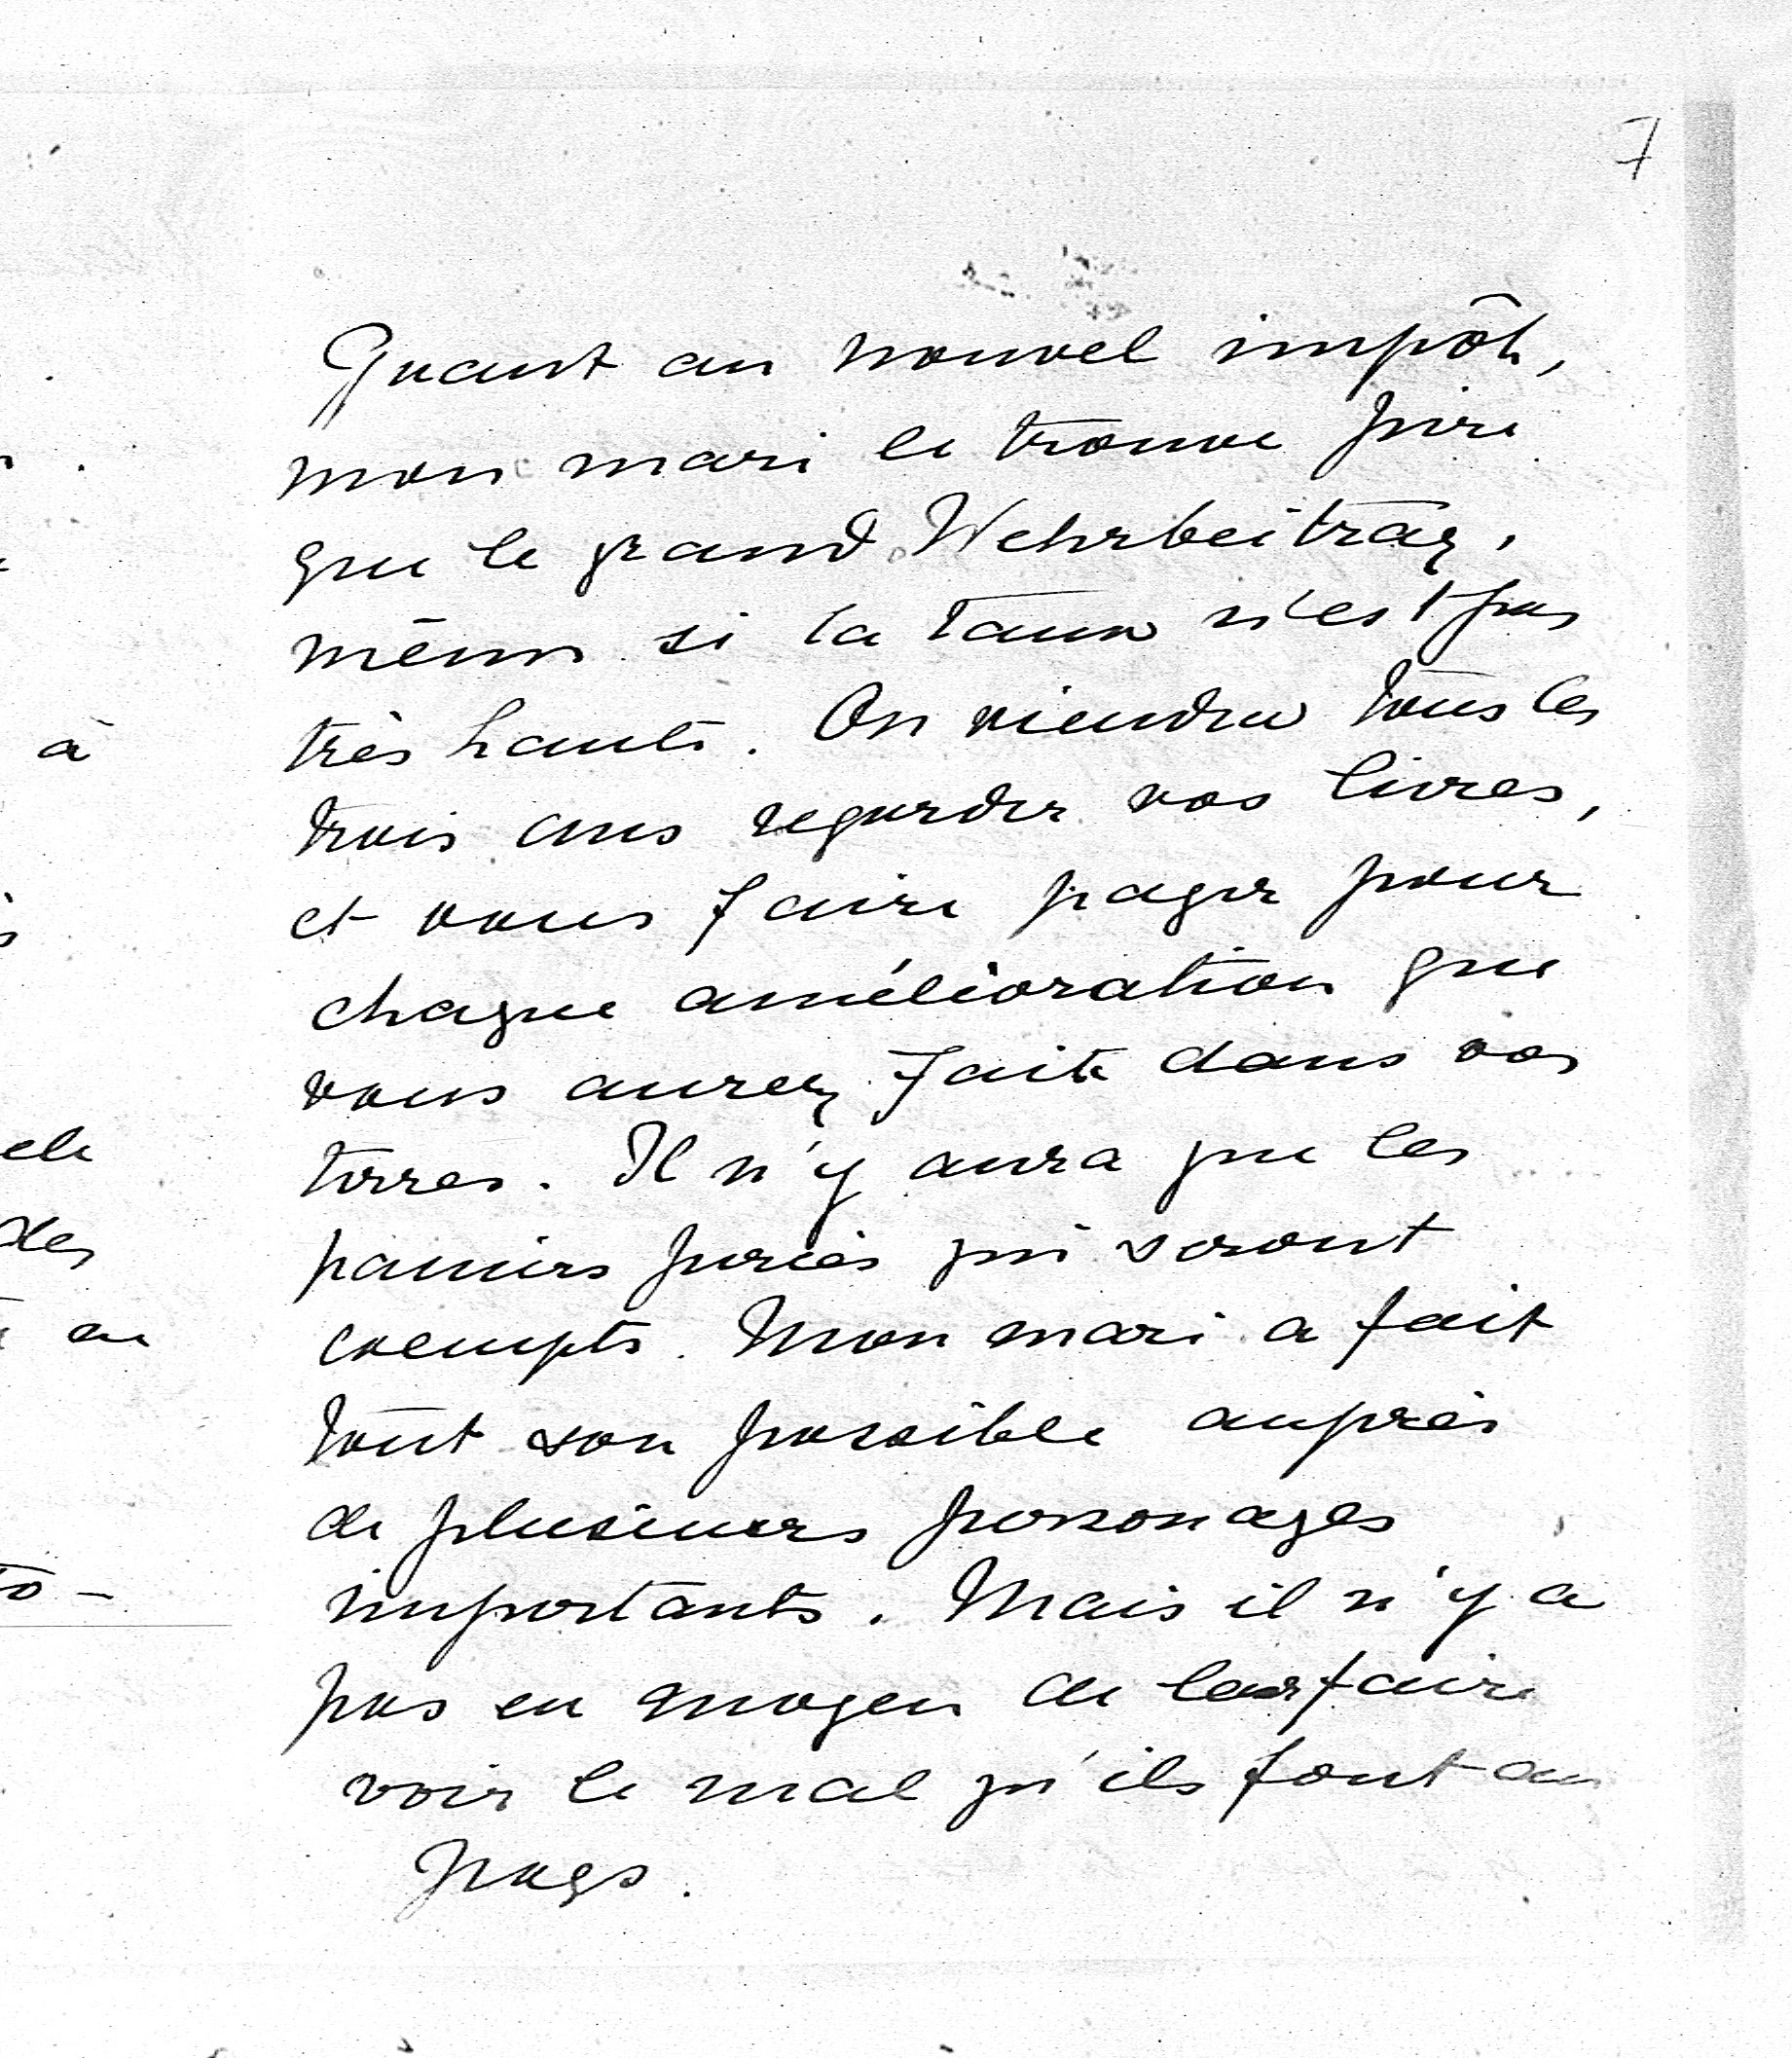 7
Quant au nouvel impôt,
mon mari le trouve pire
que le grand Wehrbeitrag,
même si la taux n'est pas
très haute. On viendra tous les
trois ans regarder vos livres,
et vous faire payer pour
chaque amélioration que
vous aurez faite dans vos
terres. Il n'y aura que les
paniers percés qui seront
exempts. Mon mari a fait
tout son possible auprès
de plusieurs personages
importants. Mais il n'y a
pas eu moyen de leur faire
voir le mal qu'ils font au
pays.
à
des
au